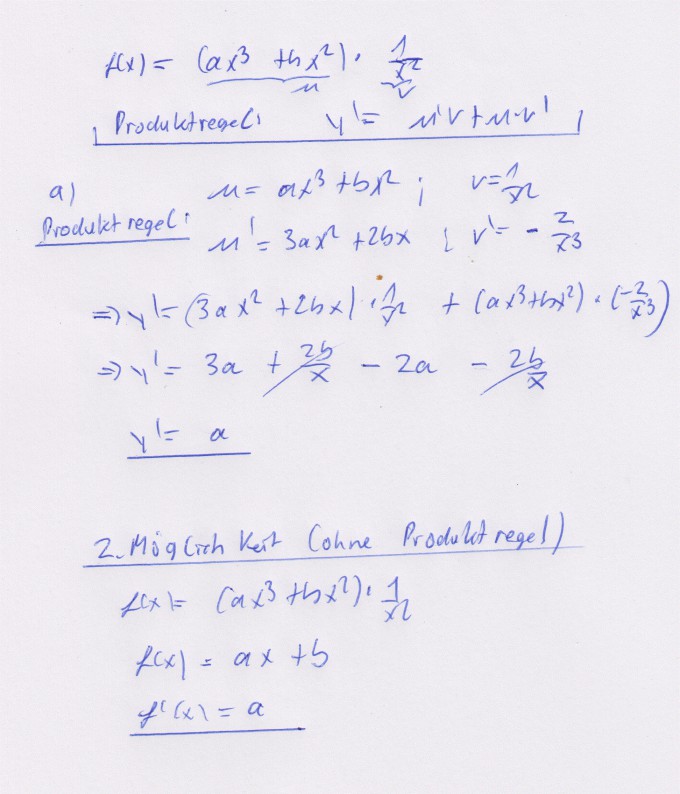 f(x) = (ax³ + bx²) · 1/x²
u v
Produktregel: y' = u'v + u·v'
a) u = ax³ + bx² ; v = 1/x²
Produktregel: u' = 3ax² + 2bx ; v' = - 2/x³
=> y' = (3ax² + 2bx) · 1/x² + (ax³ + bx²) · (-2/x³)
=> y' = 3a + 2b/x - 2a - 2b/x
y' = a
2. Möglichkeit (ohne Produktregel)
f(x) = (ax³ + bx²) · 1/x²
f(x) = ax + b
f'(x) = a